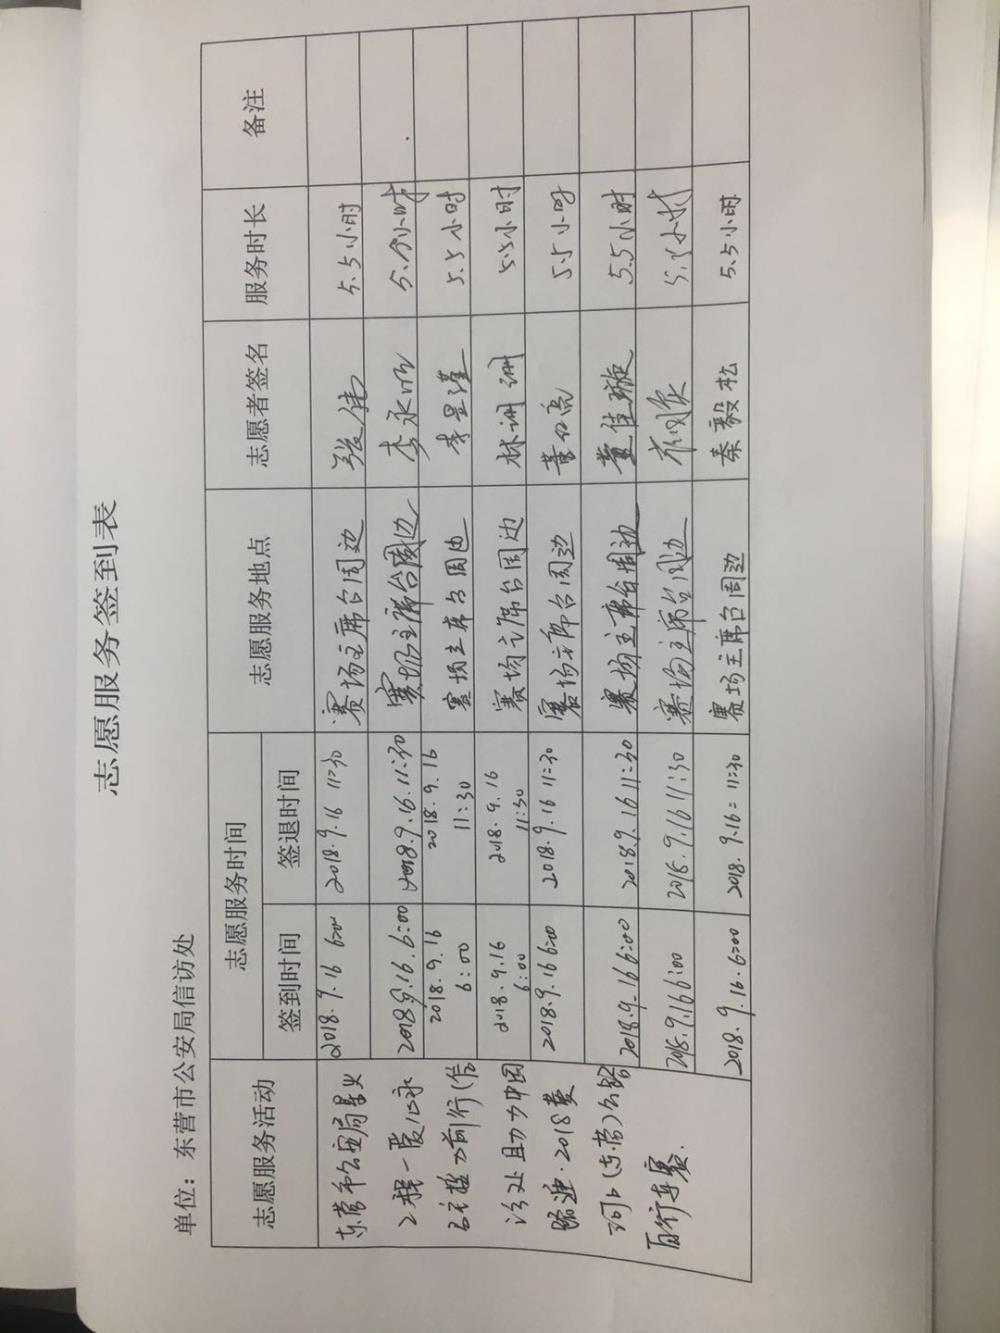 志愿服务签到表
单位：东营市公安局信访处
志愿服务活动 志愿服务时间 志愿服务地点 志愿者签名 服务时长 备注
签到时间 签退时间
东营市公安局星火 2018.9.16 6:00 2018.9.16 11:30 赛场主席台周边 张伟 5.5小时
工程—爱心永 2018.9.16.6:00 2018.9.16.11:30 赛场主席台周边 李永 5.5小时
2018.9.16 2018.9.16 赛场主席台周边 李昱瑾 5.5小时
前行(信 6:00 11:30
访处助力中国 2018.9.16 2018.9.16 赛场主席台周边 林洲洲 5.5小时
6:00 11:30
路进·2018黄 2018.9.16 6:00 2018.9.16 11:30 赛场主席台周边 5.5小时
河口(东营)公路 2018.9.16 6:00 2018.9.16 11:30 赛场主席台周边 董佳璇 5.5小时
自行车赛. 2018.9.16 6:00 2018.9.16 11:30 赛场主席台周边 5.5小时
2018.9.16.6:00 2018.9.16=11:30 赛场主席台周边 秦毅松 5.5小时